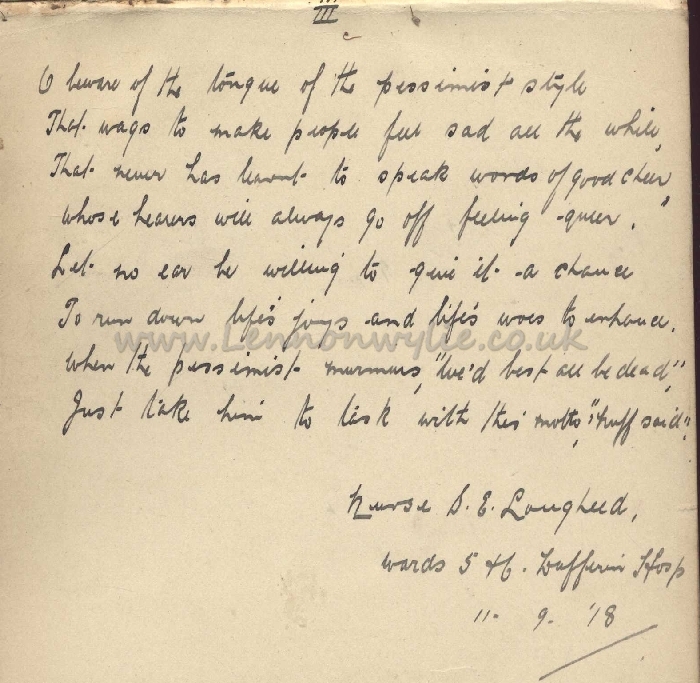 III
O beware of the tongue of the pessimist style
That wags to make people feel sad all the while,
That never has learnt to speak words of good cheer,
Whose hearers will always go off feeling queer.
Let no ear be willing to give it a chance
To run down life's joys and life's woes to enhance.
When the pessimist murmurs, "We'd best all be dead",
Just take him to task with this motto, "Nuff said".
www.Lennonwylie.co.uk
Nurse S. E. Lougheed,
Wards 5 & 6. Dufferin Hosp
11. 9. '18